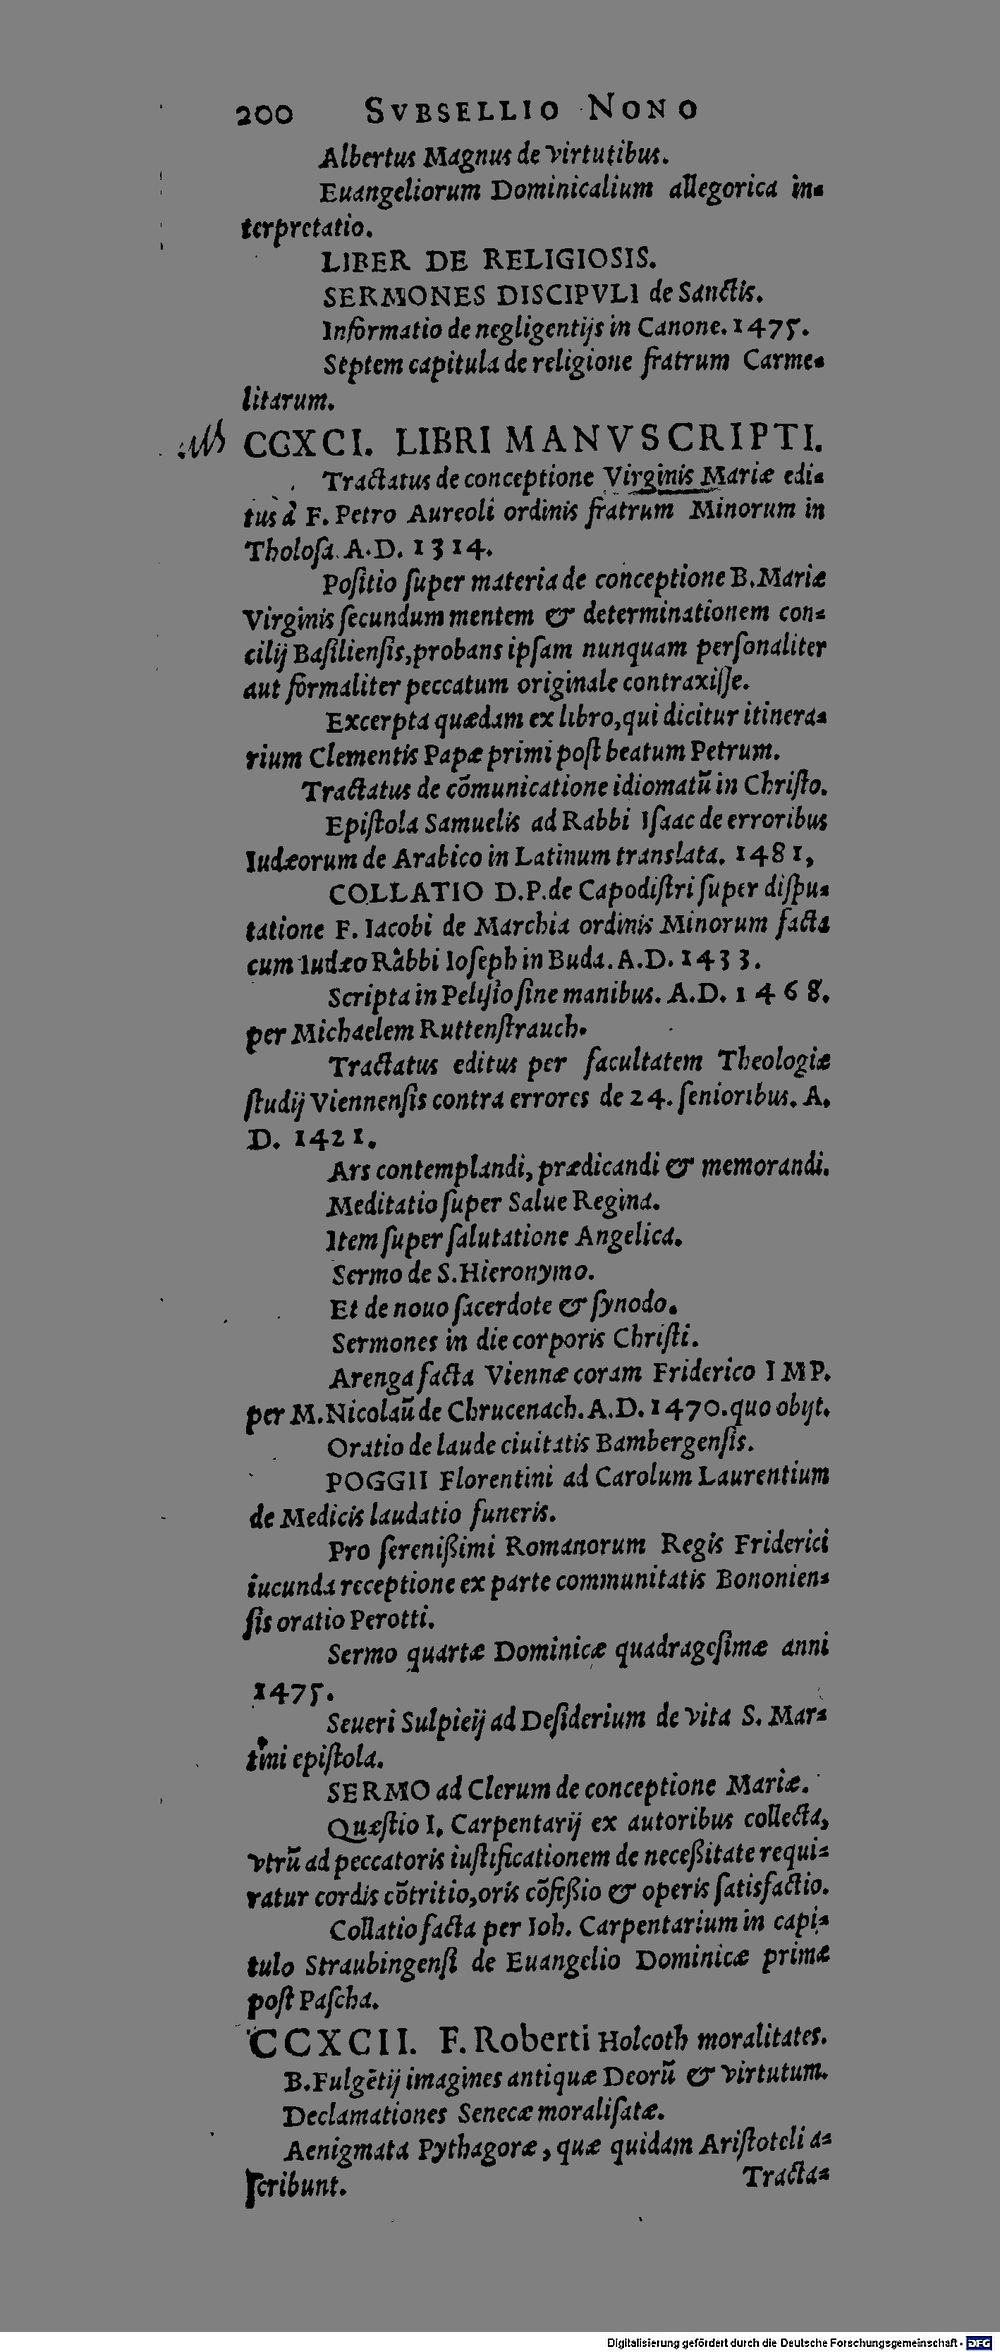 200 SVBSELLIO NONO
Albertus Magnus de virtutibus.
Euangeliorum Dominicalium allegorica in-
terpretatio.
LIBER DE RELIGIOSIS.
SERMONES DISCIPVLI de Sanctis.
Informatio de negligentijs in Canone. 1475.
Septem capitula de religione fratrum Carme-
litarum.
CCXCI. LIBRI MANVSCRIPTI.
Tractatus de conceptione Virginis Mariæ edi-
tus à F. Petro Aureoli ordinis fratrum Minorum in
Tholoſa. A.D. 1314.
Poſitio ſuper materia de conceptione B. Mariæ
Virginis ſecundum mentem & determinationem con-
cilij Baſilienſis, probans ipſam nunquam perſonaliter
aut formaliter peccatum originale contraxiſſe.
Excerpta quædam ex libro, qui dicitur itinera-
rium Clementis Papæ primi poſt beatum Petrum.
Tractatus de cōmunicatione idiomatū in Chriſto.
Epiſtola Samuelis ad Rabbi Iſaac de erroribus
Iudæorum de Arabico in Latinum translata. 1481,
COLLATIO D.P. de Capodiſtri ſuper diſpu-
tatione F. Iacobi de Marchia ordinis Minorum facta
cum Iudæo Rabbi Ioſeph in Buda. A.D. 1433.
Scripta in Peliſio ſine manibus. A.D. 1468.
per Michaelem Ruttenſtrauch.
Tractatus editus per facultatem Theologiæ
ſtudij Viennenſis contra errores de 24. ſenioribus. A.
D. 1421.
Ars contemplandi, prædicandi & memorandi.
Meditatio ſuper Salue Regina.
Item ſuper ſalutatione Angelica.
Sermo de S. Hieronymo.
Et de nouo ſacerdote & ſynodo.
Sermones in die corporis Chriſti.
Arenga facta Viennæ coram Friderico IMP.
per M. Nicolaū de Chrucenach. A.D. 1470. quo obijt.
Oratio de laude ciuitatis Bambergenſis.
POGGII Florentini ad Carolum Laurentium
de Medicis laudatio funeris.
Pro ſereniſsimi Romanorum Regis Friderici
iucunda receptione ex parte communitatis Bononien-
ſis oratio Perotti.
Sermo quartæ Dominicæ quadrageſimæ anni
1475.
Seueri Sulpieij ad Deſiderium de vita S. Mar-
tini epiſtola.
SERMO ad Clerum de conceptione Mariæ.
Quæſtio I. Carpentarij ex autoribus collecta,
vtrū ad peccatoris iuſtificationem de neceſsitate requi-
ratur cordis cōtritio, oris cōfeſsio & operis ſatisfactio.
Collatio facta per Ioh. Carpentarium in capi-
tulo Straubingenſi de Euangelio Dominicæ primæ
poſt Paſcha.
CCXCII. F. Roberti Holcoth moralitates.
B. Fulgētij imagines antiquæ Deorū & virtutum.
Declamationes Senecæ moraliſatæ.
Aenigmata Pythagoræ, quæ quidam Ariſtoteli a-
ſcribunt.
Tracta-
Digitalisierung gefördert durch die Deutsche Forschungsgemeinschaft - DFG